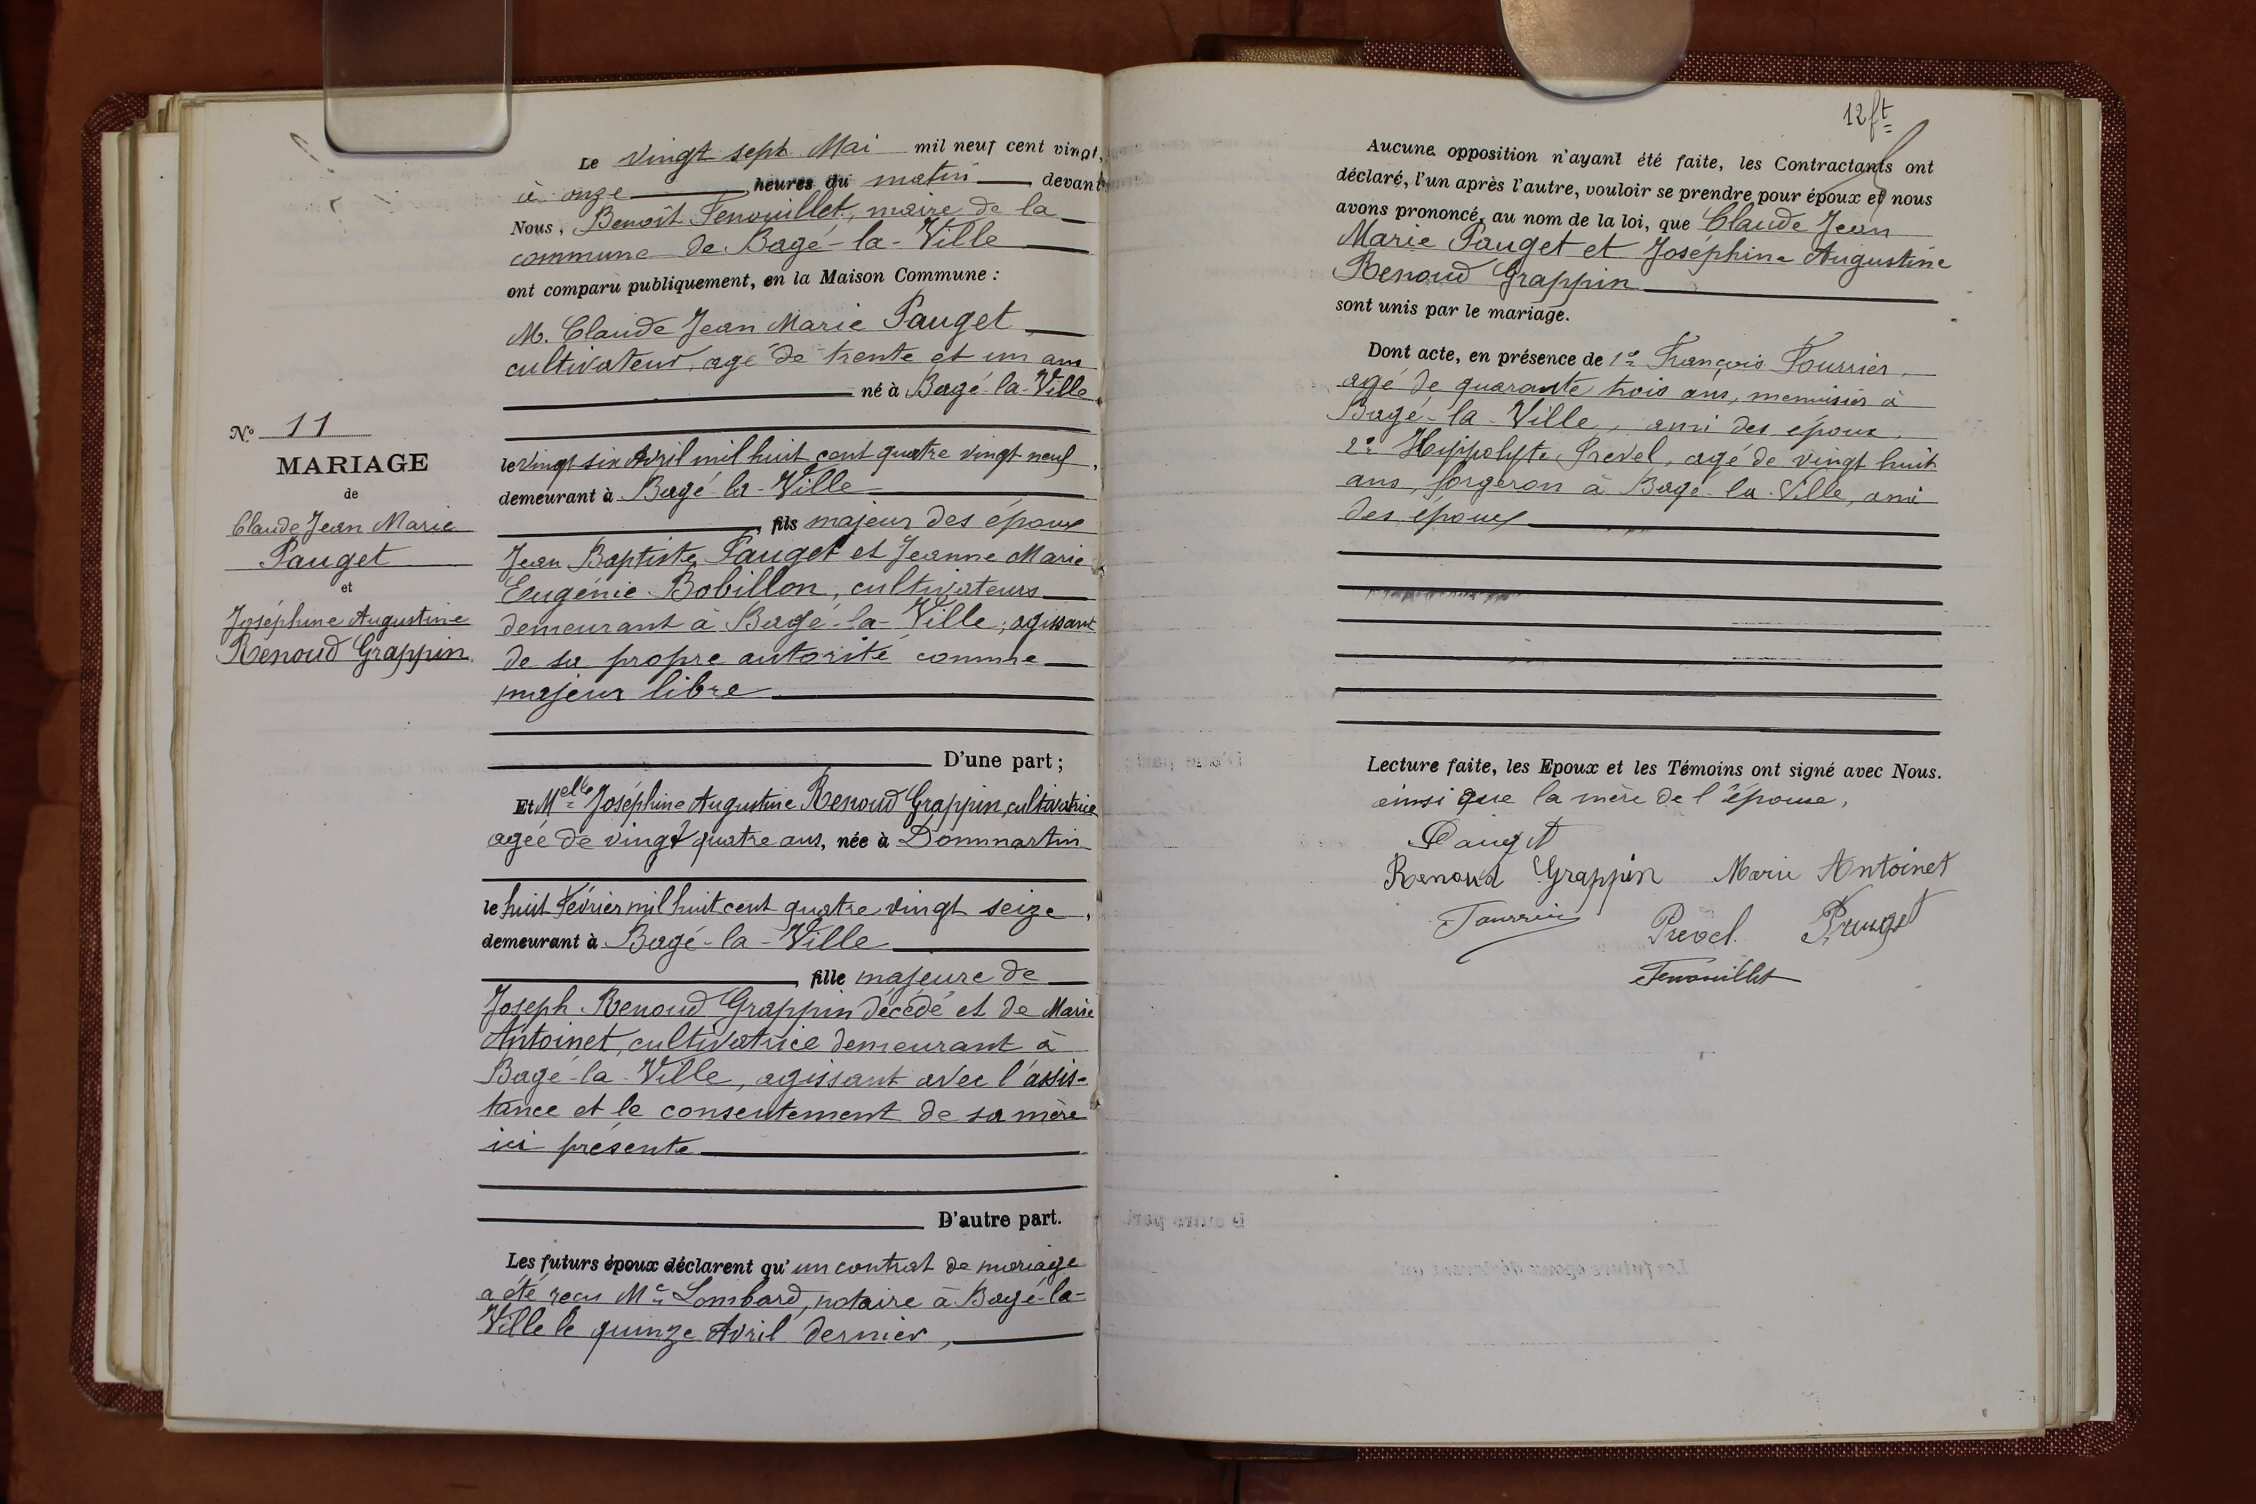 Le vingt sept Mai mil neuf cent vingt,
à onze heures du matin devant
Nous, Benoît Fenouillet, maire de la
commune de Bagé-la-Ville
ont comparu publiquement, en la Maison Commune :
M. Claude Jean Marie Pauget,
cultivateur, agé de trente et un ans
né à Bagé-la-Ville
le vingt six Avril mil huit cent quatre vingt neuf,
demeurant à Bagé-la-Ville
fils majeur des époux
Jean Baptiste Pauget et Jeanne Marie
Eugénie Bobillon, cultivateurs
demeurant à Bagé-la-Ville, agissant
de sa propre autorité comme
majeur libre
D'une part ;
N° 11
MARIAGE
de
Claude Jean Marie
Pauget
et
Joséphine Augustine
Renoud Grappin
Et Melle Joséphine Augustine Renoud Grappin, cultivatrice
agée de vingt quatre ans, née à Dommartin
le huit Février mil huit cent quatre vingt seize,
demeurant à Bagé-la-Ville
fille majeure de
Joseph Renoud Grappin décédé et de Marie
Antoinet, cultivatrice demeurant à
Bagé-la-Ville, agissant avec l'assis-
tance et le consentement de sa mère
ici présente
D'autre part.
Les futurs époux déclarent qu'un contrat de mariage
a été reçu Me Lombard, notaire à Bagé-la-
Ville le quinze Avril dernier,
12 ft
Aucune opposition n'ayant été faite, les Contractants ont
déclaré, l'un après l'autre, vouloir se prendre pour époux et nous
avons prononcé, au nom de la loi, que Claude Jean
Marie Pauget et Joséphine Augustine
Renoud Grappin
sont unis par le mariage.
Dont acte, en présence de 1° François Fourrier,
agé de quarante trois ans, menuisier à
Bagé-la-Ville, ami des époux,
2° Hippolyte Prevel, agé de vingt huit
ans, forgeron à Bagé-la-Ville, ami
des époux
Lecture faite, les Epoux et les Témoins ont signé avec Nous.
ainsi que la mère de l'épouse,
Pauget
Renoud Grappin Marie Antoinet
Fourrier Prevel
Fenouillet